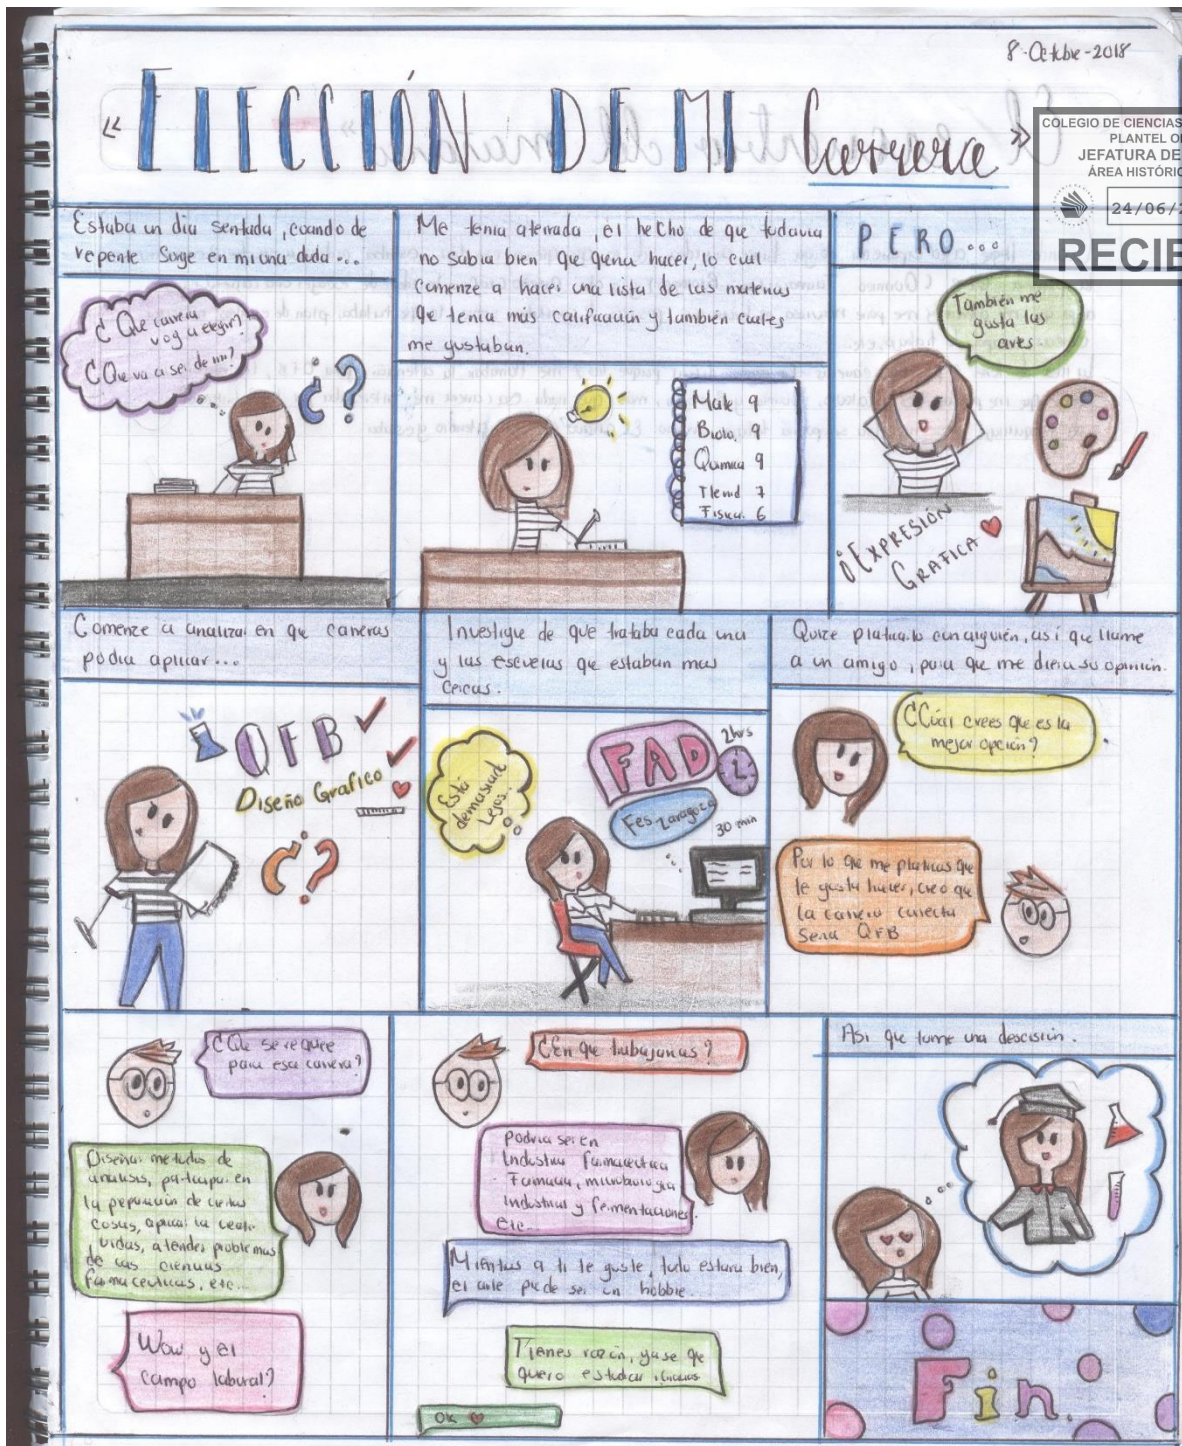 8-Octubre-2018
« ELECCIÓN DE MI Carrera »
COLEGIO DE CIENCIAS
PLANTEL
JEFATURA DE
ÁREA HISTÓRIC
24/06/2
RECIB
Estaba un dia sentada, cuando de
repente Surge en mi una duda ...
¿Que carrera
voy a elegir?
¿Que va a ser de mi?
¿?
Me tenia aterrada, el hecho de que todavia
no sabia bien que queria hacer, lo cual
comenze a hacer una lista de las materias
que tenia más calificación y también cuales
me gustaban.
Mate 9
Biolo. 9
Quimica 9
Tlerid 7
Fisica. 6
PERO...
También me
gusta las
artes
¡EXPRESIÓN
GRAFICA
Comenze a analizar en que carreras
podia aplicar...
QFB
Diseño Grafico
¿?
Investigue de que trataba cada una
y las escuelas que estaban mas
cercas.
Está
demasiado
Lejos..
FAD
2hrs
Fes Zaragoza
30 min
Quize platicarlo con alguién, así que llame
a un amigo, para que me diera su opinión.
¿Cúal crees que es la
mejor opción?
Por lo que me platicas que
te gusta hacer, creo que
la carrera correcta
seria QFB
¿Que se requiere
para esa carrera?
Diseñar metodos de
analisis, participar en
la preparación de ciertas
cosas, aplicar la
vidas, atender problemas
de las ciencias
farmaceuticas, etc...
Wow y el
campo laboral?
¿En que trabajarias?
Podria ser en
Industria farmaceutica
Farmacia, microbiologia
Industrial y fermentaciones.
etc...
Mientras a ti te guste, todo estara bien,
el arte puede ser un hobbie.
Tienes razón, ya se que
quiero estudiar. Gracias
Ok
Asi que tome una descisión.
Fin.